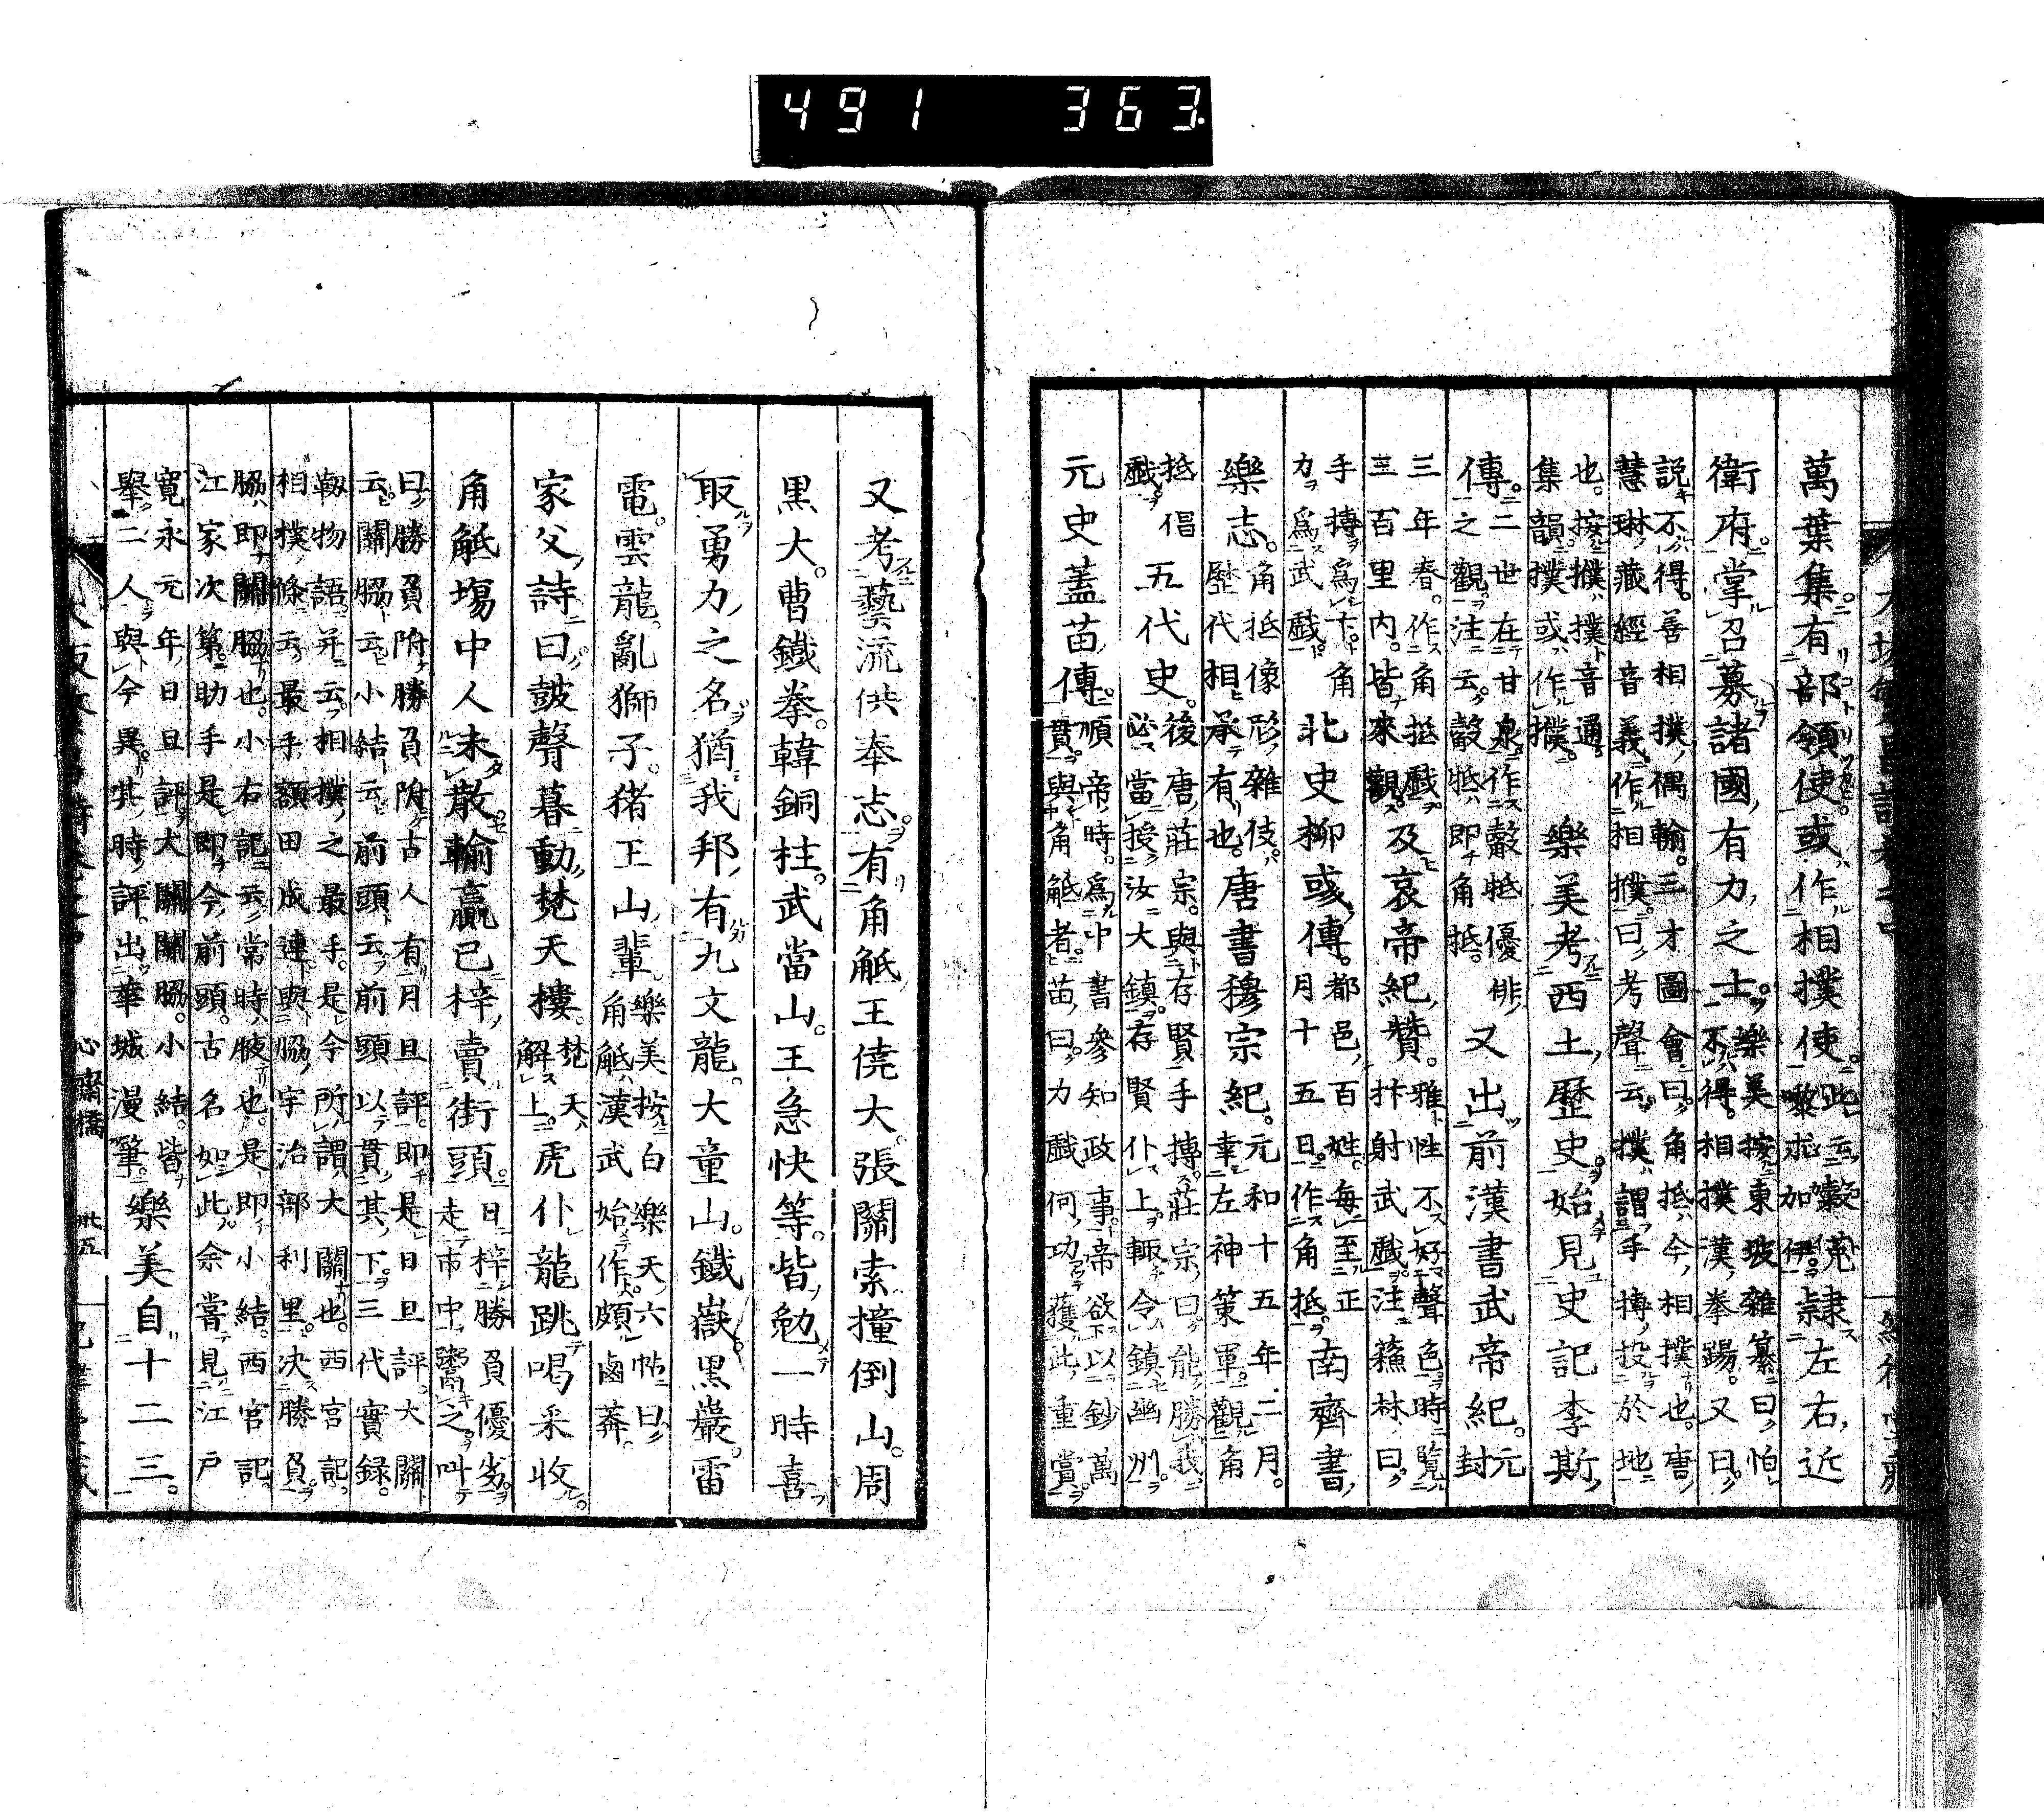 491 363
萬葉集。有部領使。或作相撲使。此云毅苑隷左右近
嚟
衛府。掌召募諸國有力之士。樂美按東坡雜纂曰怕
不得。相撲漢拳踢。又曰
説不得。善相撲偶輸。三才圖會曰。角抵今相撲也。唐
慧琳藏經音義作相撲。曰考聲云撲謂手搏投於地
也。按撲撲音通。
集韻撲或作撲。樂美考西土歷史。始見史記李斯
傳。二世在甘泉作觳牴優俳
之觀注云。觳牴即角抵。又出前漢書武帝紀。元封
三年春。作角抵戲
三百里内。皆來觀。及哀帝紀贊。雅性不好聲色。時覽
抃射武戲注蘇林曰
手搏爲卞。角
力爲武戲。北史柳彧傳。都邑百姓。每至正
月十五日。作角抵。南齊書
樂志。角抵像形雜伎。
歷代相承有也。唐書穆宗紀。元和十五年二月。
幸左神策軍。觀角
抵倡
戲。五代史。後唐莊宗。與存賢手搏。莊宗曰能勝我
必當授汝大鎮。存賢仆上。輒令鎮幽州。
元史蓋苗傳。順帝時。爲中書參知政事。帝欲以鈔萬
貫。與角觝者。苗曰。力戲何功獲此重賞
又考藝流供奉志。有角觝王僥大。張關索撞倒山。周
黑大。曹鐵拳。韓銅柱。武當山。王急快等。皆勉一時喜
取勇力之名。猶我邦有九文龍。大童山。鐵嶽。黒巖。雷
電。雲龍。亂獅子。猪王山輩。樂美按白樂天六帖曰
角觝漢武始作頗鹵莽。
家父詩曰。鼓聲暮動梵天樓。梵天
解上。虎仆龍跳喝采收
角觝塲中人未散輸贏已梓賣街頭。日梓勝負優劣。
走市中鬻之叫
曰勝負附勝負附古人有月旦評。即是日旦評。大關
云關脇云小結云前頭云前頭以貫其下。三代實録。
靱物語并云。相撲之最手。是今所謂大關也。西宮記
相撲條云最手額田成連與脇宇治部利里。決勝負。
脇即關脇也。小右記云常時腋也。是即小結。西宮記
江家次第助手是即今前頭。古名如此。余嘗見江戸
寛永元年日旦評。大關關脇。小結。皆
擧二人與今異其時評。出華城漫筆。樂美自十二三。
心齋橋
卅五